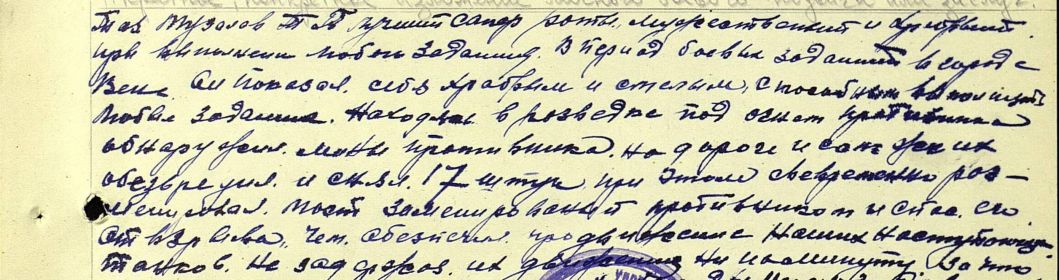 Тов Музолев Т П лучший сапер роты, мужественный и храбрый
при выполнени любого задания. В период боевых заданий в городе
Вене. Он показал себя храбрым и смелым, способным выполнять
любые задания. Находясь в разведке под огнем противника
обнаружил. мины противника. на дороге и сам же их
обезвредил. и снял. 17 штук при этом свевременно раз-
минировал. мост заменированый противником и спас. его
от взрыва, чем. обеспечил продвижение наших наступающих
танков. Не задержав. их движение ни на минуту За что